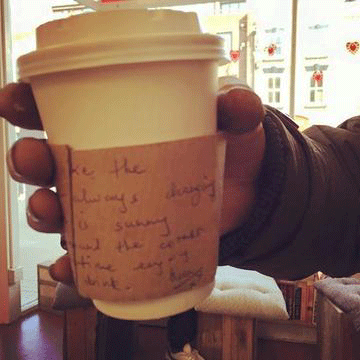 ke the
always changing
is sunny
und the corner
time enjoy
drink.